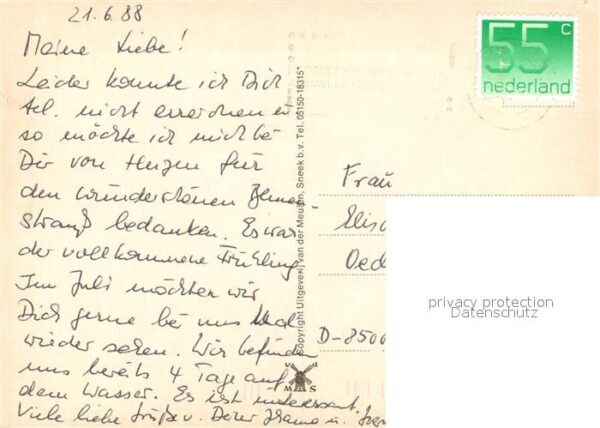 21.6.88
Meine Liebe!
Leider konnte ich Dich
tel. nicht erreichen u
so möchte ich mich bei
Dir von Herzen für
den wunderschönen Blumen
strauß bedanken. Es war
der vollkommene Frühling
Im Juli möchten wir
Dich gerne bei uns
wieder sehen. Wir befinden
uns bereits 4 Tage auf
dem Wasser. Es ist interessant.
Viele liebe Grüße v. Deiner u.
Copyright Uitgeverij van der Meulen, Sneek b.v. Tel. 05150-18315*
V D
M S
55 c
nederland
Frau
Elis
Oed
D-8500
privacy protection
Datenschutz